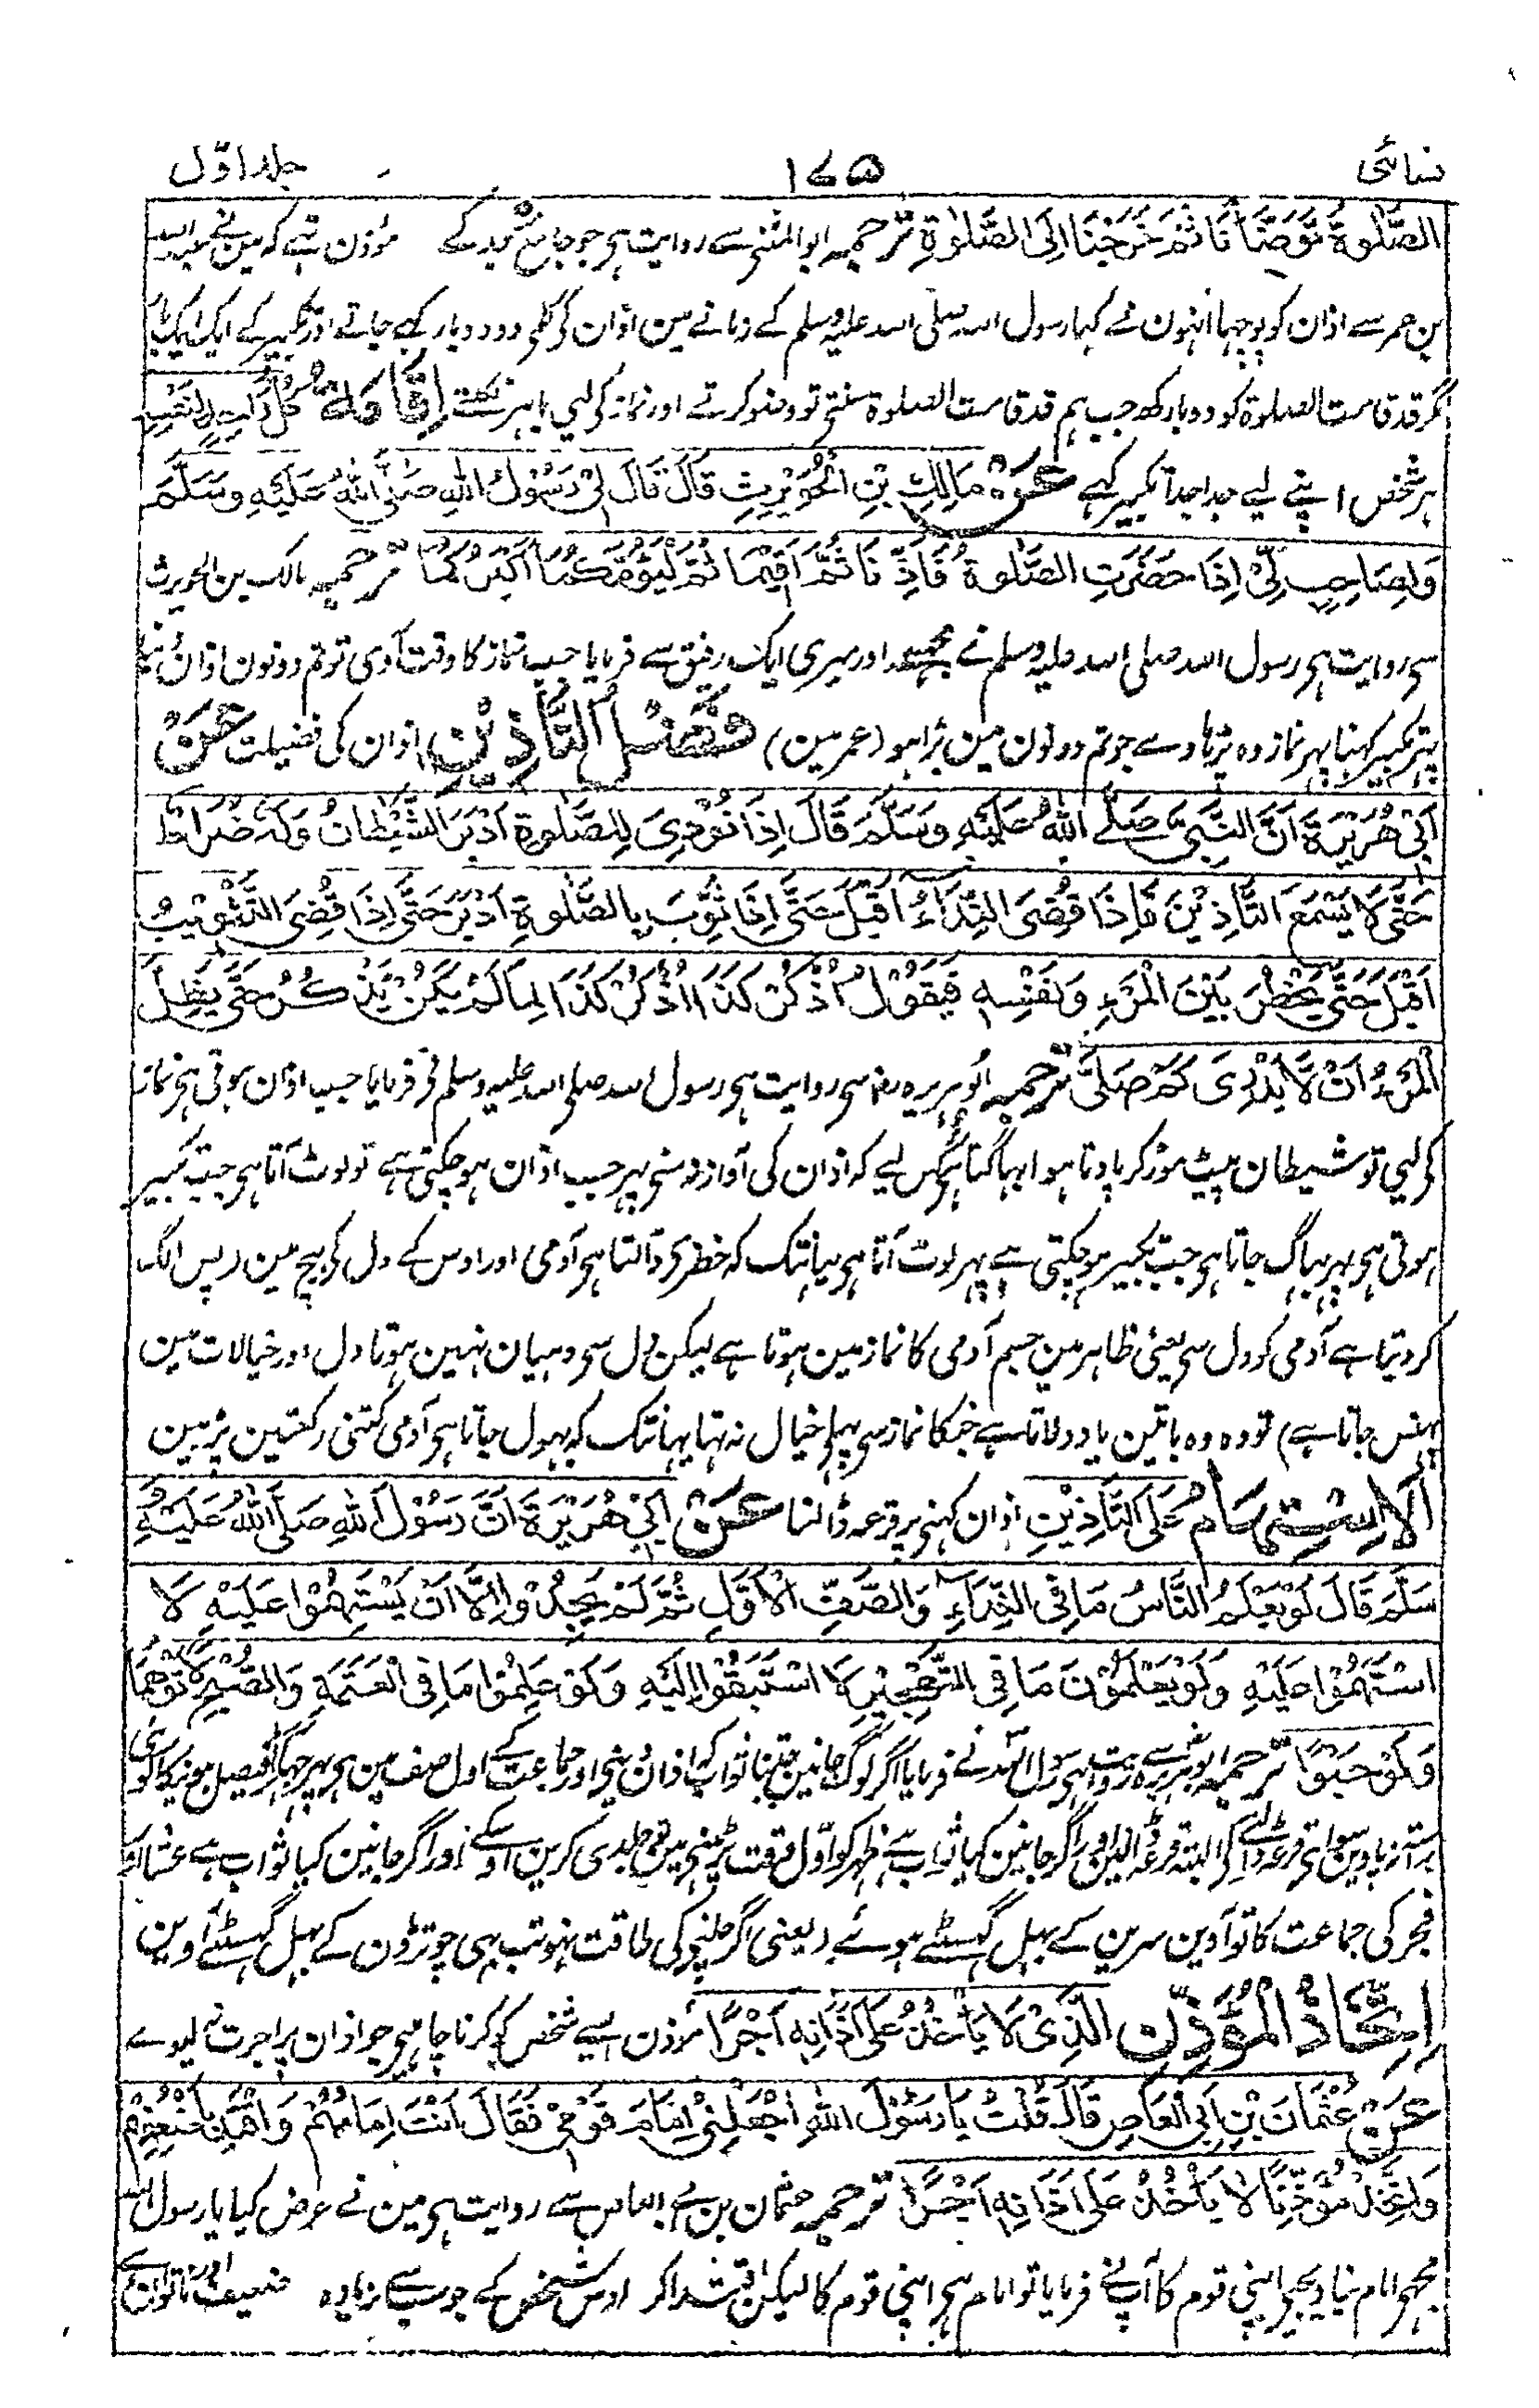 نسائی ۱۷۵ جلد اوّل
الصَّلٰوةِ تَوَضَّأْنَا ثُمَّ خَرَجْنَا اِلَی الصَّلٰوةِ ترجمہ ابو المثنی سے روایت ہی جو جامع مسجد کے موذن تہے کہ مین نے عبد اللہ
بن عمر سے اذان کو پوچہا اُنہون نے کہا رسول اللہ صلی اللہ علیہ وسلم کے زمانے مین اذان کی کلمی دو دو بار کہے جاتے اور تکبیر کے ایک ایک بار
مگر قد قامت الصلوة کو دو بار کہ جب ہم قد قامت الصلوة سنتے تو وضو کرتے اور نماز کی لیی باہر نکلتے اِقَامَةُ كُلِّ وَاحِدٍ لِّنَفْسِهِ
ہر شخص اپنے لیے جدا جدا تکبیر کہے عَنْ مَالِكِ بْنِ الْحُوَيْرِثِ قَالَ قَالَ لِیْ رَسُوْلُ اللهِ صَلَّى اللهُ عَلَيْهِ وَسَلَّمَ
وَلِصَاحِبٍ لِّیْ اِذَا حَضَرَتِ الصَّلٰوةُ فَاَذِّنَا ثُمَّ اَقِيْمَا ثُمَّ لْيَؤُمَّكُمَا اَكْبَرُكُمَا ترجمہ مالک بن الحویرث
سی روایت ہی رسول اللہ صلی اللہ علیہ وسلم نے مجہسے اور میری ایک رفیق سے فرمایا جب نماز کا وقت آوی تو تم دونون اذان دینا
پہر تکبیر کہنا پہر نماز وہ پڑہاوے جو تم دونون مین بڑا ہو (عمر مین) فَضْلُ التَّأْذِيْنِ اذان کی فضیلت عَنْ
اَبِیْ هُرَيْرَةَ اَنَّ النَّبِیَّ صَلَّى اللهُ عَلَيْهِ وَسَلَّمَ قَالَ اِذَا نُوْدِیَ لِلصَّلٰوةِ اَدْبَرَ الشَّيْطَانُ وَلَهٗ ضُرَاطٌ
حَتّٰى لَا يَسْمَعَ التَّأْذِيْنَ فَاِذَا قُضِیَ النِّدَآءُ اَقْبَلَ حَتّٰى اِذَا ثُوِّبَ بِالصَّلٰوةِ اَدْبَرَ حَتّٰى اِذَا قُضِیَ التَّثْوِيْبُ
اَقْبَلَ حَتّٰى يَخْطُرَ بَيْنَ الْمَرْءِ وَنَفْسِهِ فَيَقُوْلُ اُذْكُرْ كَذَا اُذْكُرْ كَذَا لِمَا لَمْ يَكُنْ يَّذْكُرُ حَتّٰى يَظِلَّ
الْمَرْءُ اَنْ لَّا يَدْرِیَ كَمْ صَلّٰى ترجمہ ابو ہریرہ رضہ سی روایت ہی رسول اللہ صلی اللہ علیہ وسلم نی فرمایا جب اذان ہوتی ہی نماز
کی لیی تو شیطان پیٹ موڑ کر پادتا ہوا بہاگتا ہی اس لیے کہ اذان کی آواز نہ سنی پہر جب اذان ہو چکتی ہے تو لوٹ آتا ہی جب تکبیر
ہوتی ہی پہر بہاگ جاتا ہی جب تکبیر ہو چکتی ہے پہر لوٹ آتا ہی یہانتک کہ خطری ڈالتا ہی آدمی اور اوس کے دل کی بیچ مین (پس الگ
کر دیتا ہے آدمی کو دل سی یعنی ظاہر مین جسم آدمی کا نماز مین ہوتا ہے لیکن دل سی دہیان نہین ہوتا دل اور خیالات مین
پہنس جاتا ہے) تو وہ وہ باتین یاد دلاتا ہے جنکا نماز سی پہلی خیال نہ تہا یہانتک کہ بہول جاتا ہی آدمی کتنی رکعتین پڑہین
اَلْاِسْتِهَامُ عَلَی التَّأْذِيْنِ اذان کہنی پر قرعہ ڈالنا عَنْ اَبِیْ هُرَيْرَةَ اَنَّ رَسُوْلَ اللهِ صَلَّى اللهُ عَلَيْهِ وَ
سَلَّمَ قَالَ لَوْ يَعْلَمُ النَّاسُ مَا فِی النِّدَآءِ وَالصَّفِّ الْاَوَّلِ ثُمَّ لَمْ يَجِدُوْا اِلَّا اَنْ يَسْتَهِمُوْا عَلَيْهِ لَا
اسْتَهَمُوْا عَلَيْهِ وَلَوْ يَعْلَمُوْنَ مَا فِی التَّهْجِيْرِ لَا اسْتَبَقُوْا اِلَيْهِ وَلَوْ عَلِمُوْا مَا فِی الْعَتَمَةِ وَالصُّبْحِ لَاَتَوْهُمَا
وَلَوْ حَبْوًا ترجمہ ابو ہریرہ سے روایت ہی رسول اللہ نے فرمایا اگر لوگ جانین جتنا ثواب کہ اذان مین ہی اور جماعت کے اول صف مین ہی پہر جہگڑا فیصل ہونیکا کوئی
رستہ نہ پاوین سوای قرعہ ڈالنے کی البتہ قرعہ ڈالین اور اگر جانین کیا ثواب ہے ظہر کو اوّل وقت پڑہنی مین تو جلدی کرین اوسکے اور اگر جانین کیا ثواب ہے عشا اور
فجر کی جماعت کا تو آوین سرین کے بہل گہسٹتے ہوئے (یعنی اگر چلنے کی طاقت نہو تب بہی چوتڑون کے بہل گہسٹتے آوین
اِتِّخَاذُ الْمُؤَذِّنِ الَّذِیْ لَا يَأْخُذُ عَلٰى اَذَانِهٖ اَجْرًا موذن ایسے شخص کو کرنا چاہیی جو اذان پر اجرت نہ لیوے
عَنْ عُثْمَانَ بْنِ اَبِی الْعَاصِ قَالَ قُلْتُ يَا رَسُوْلَ اللهِ اجْعَلْنِیْ اِمَامَ قَوْمِیْ فَقَالَ اَنْتَ اِمَامُهُمْ وَاقْتَدِ بِاَضْعَفِهِمْ
وَاتَّخِذْ مُؤَذِّنًا لَا يَأْخُذُ عَلٰى اَذَانِهٖ اَجْرًا ترجمہ عثمان بن ابی العاص سے روایت ہی مین نے عرض کیا یا رسول اللہ
مجہی امام بنا دیجیی اپنی قوم کا آپ نے فرمایا تو امام ہی اپنی قوم کا لیکن اقتدا کر اوس شخص کے جو سب سے زیادہ ضعیف اور ناتوان ہے